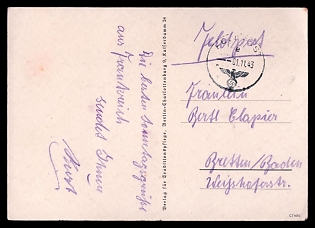 Die besten Sonntagsgrüße
aus Frankreich
sendet Ihnen
Kurt
Verlag für Traditionspflege, Berlin-Charlottenburg 9, Kaiserdamm 24
Feldpost
Fräulein
Bertl Clapier
Bretten/Baden
Weißhoferstr.